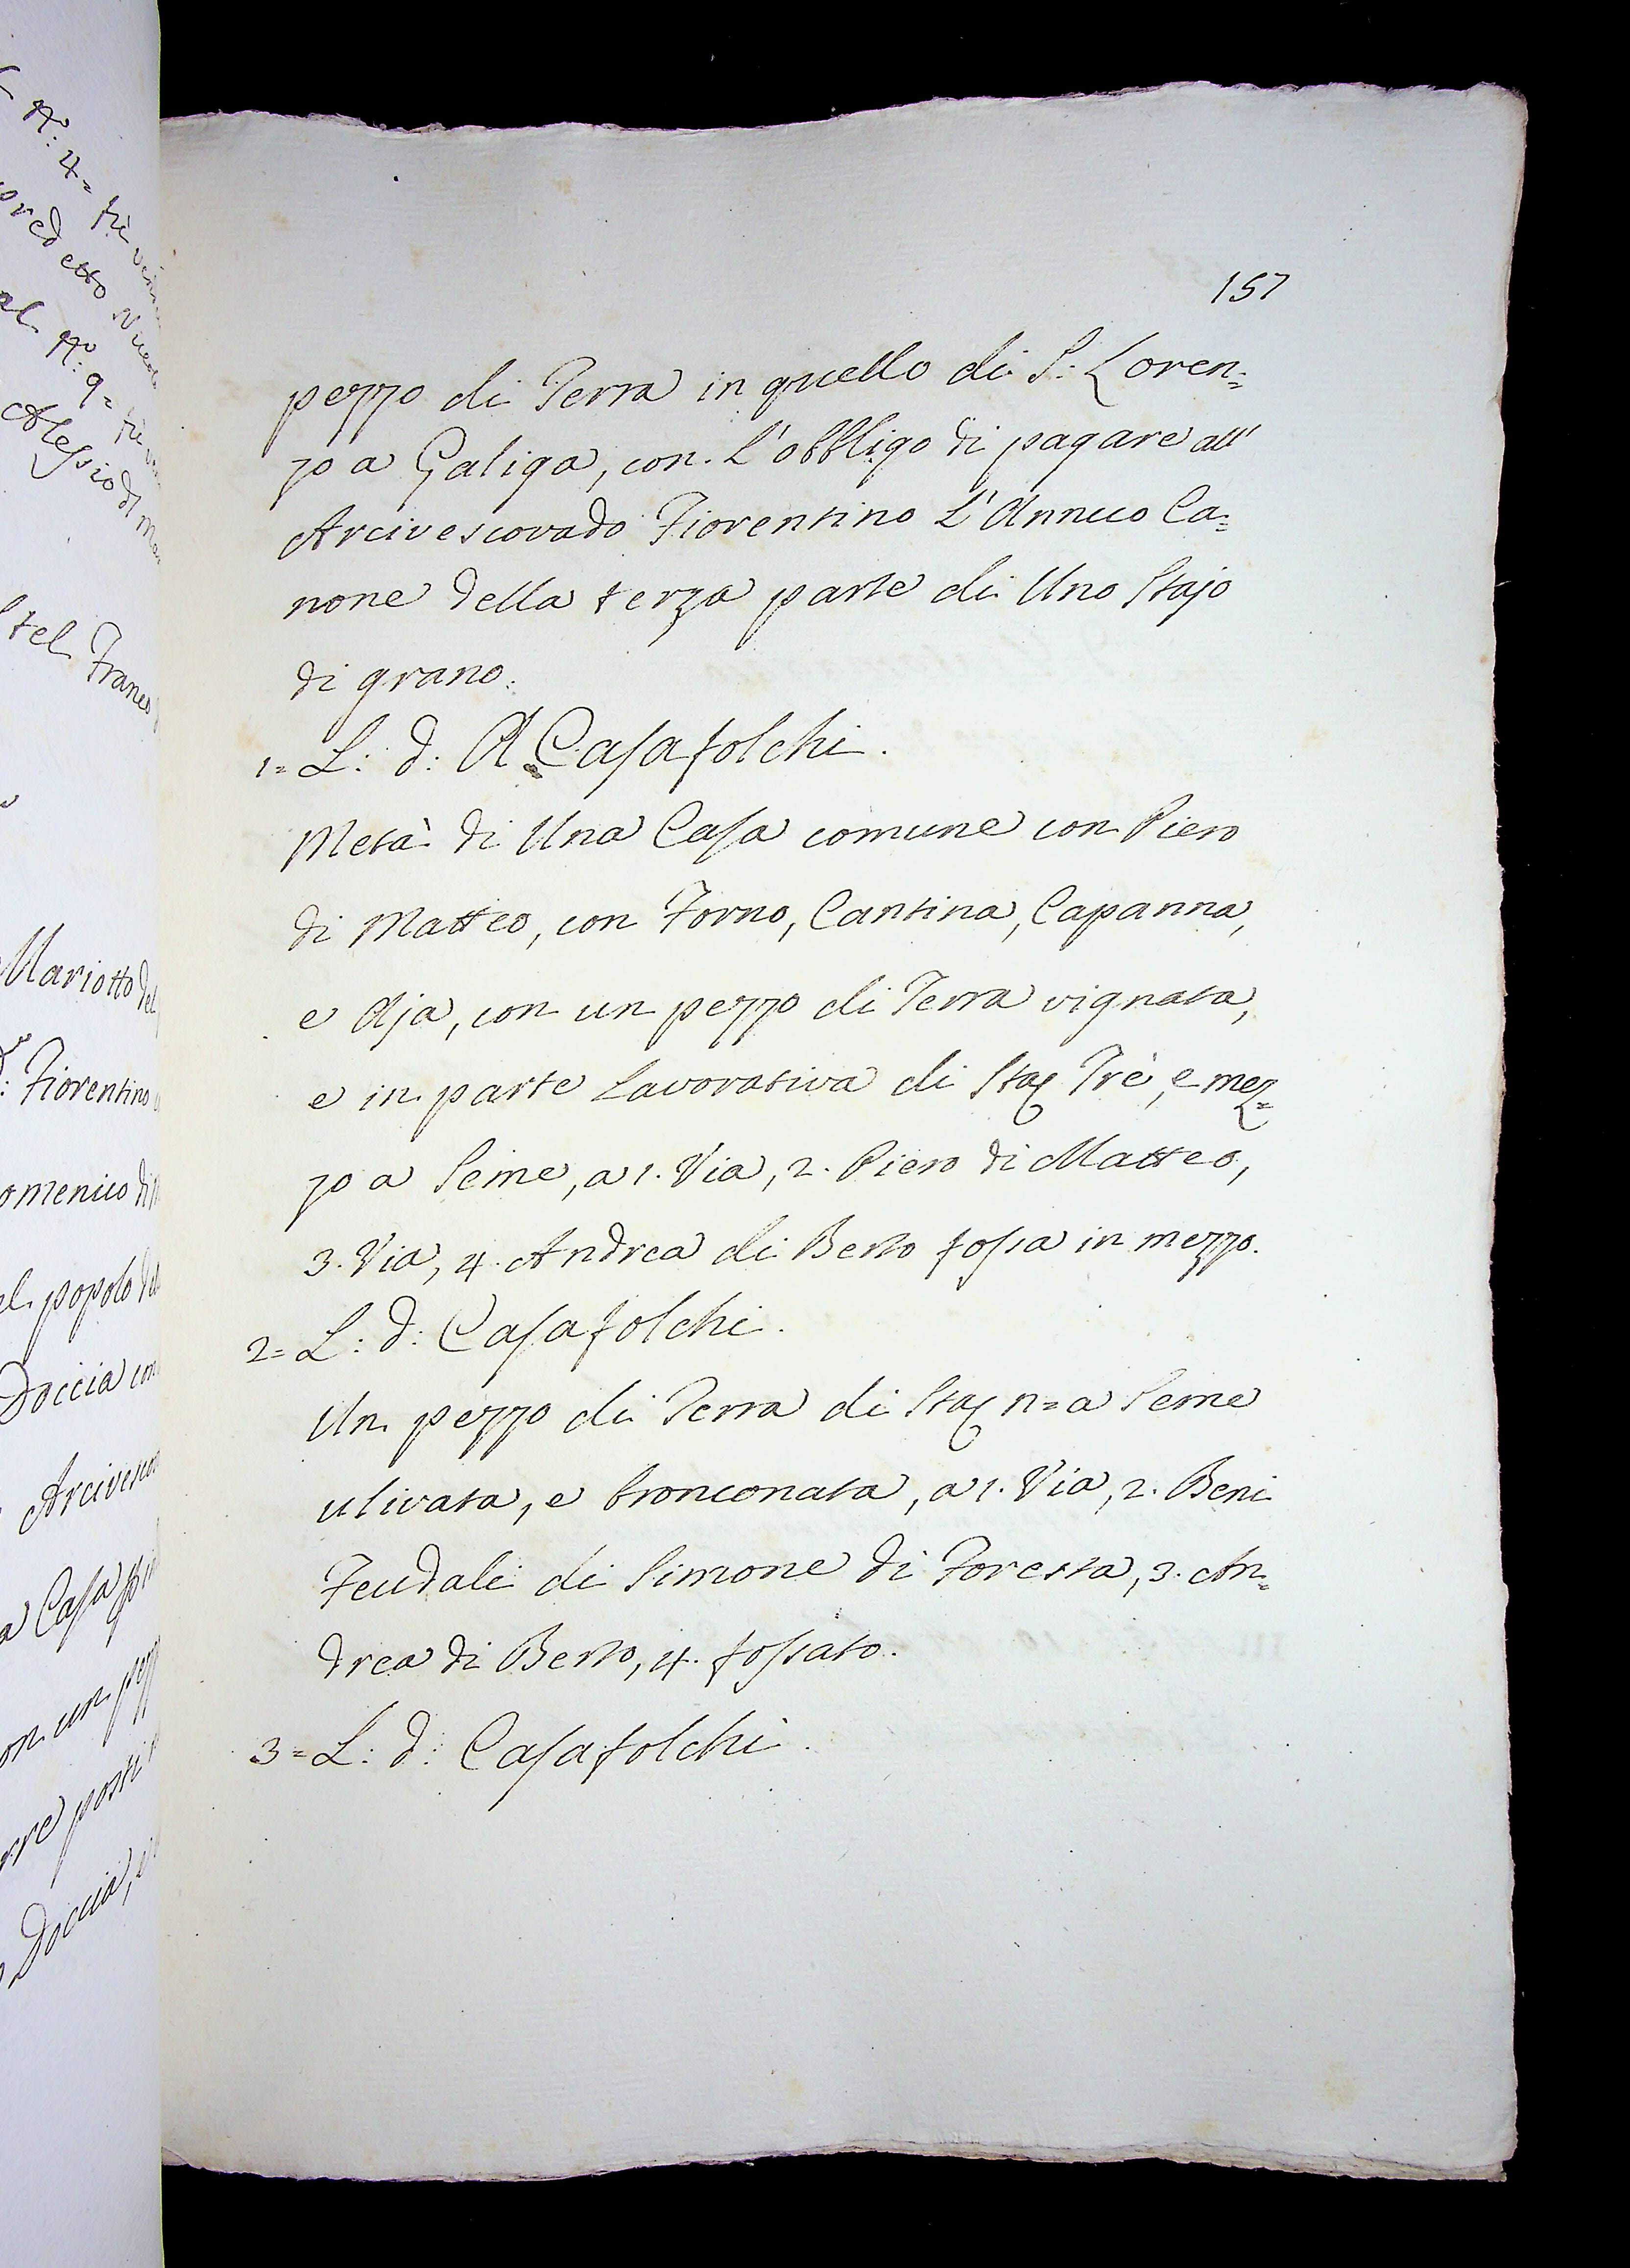 157
pezzo di Terra in quello di S: Loren=
zo a Galiga, con L'obbligo di pagare all'
Arcivescovado Fiorentino L'Annuo Ca=
none della terza parte di Uno Stajo
di grano.
1= L: d: A Casafolchi.
Metà di Una Casa comune con Piero
di Matteo, con Forno, Cantina, Capanna,
e Aja, con un pezzo di Terra vignata,
e in parte Lavorativa di Staj Trè, e mez=
zo a Seme, a 1. Via, 2. Piero di Matteo,
3. Via, 4. Andrea di Berto fossa in mezzo.
2= L: d: Casafolchi.
Un pezzo di Terra di Staj n= a Seme
ulivata, e bronconata, a 1. Via, 2. Beni
Feudali di Simone di Foresta, 3. An=
drea di Berto, 4. fossato.
3= L: d: Casafolchi.
N.o: 4= fù
predetto
al N.o: 9= fù
Alessio di
Mariotto del
: Fiorentino
omenico di
el popolo
Doccia con
Arcivesco
a Casa
on un pez
rre posti
Doccia, e